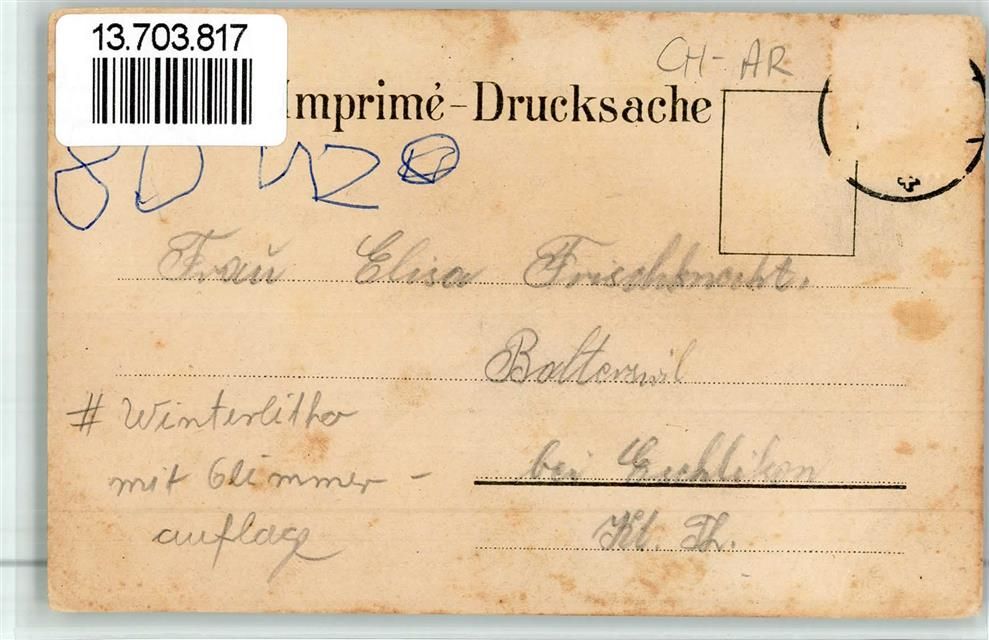 13.703.817
CH-AR
Imprimé-Drucksache
Frau Elisa Frischknecht.
Balterswil
# Winterlitho
mit Glimmer-
auflage
bei Eschlikon
Kt. Th.